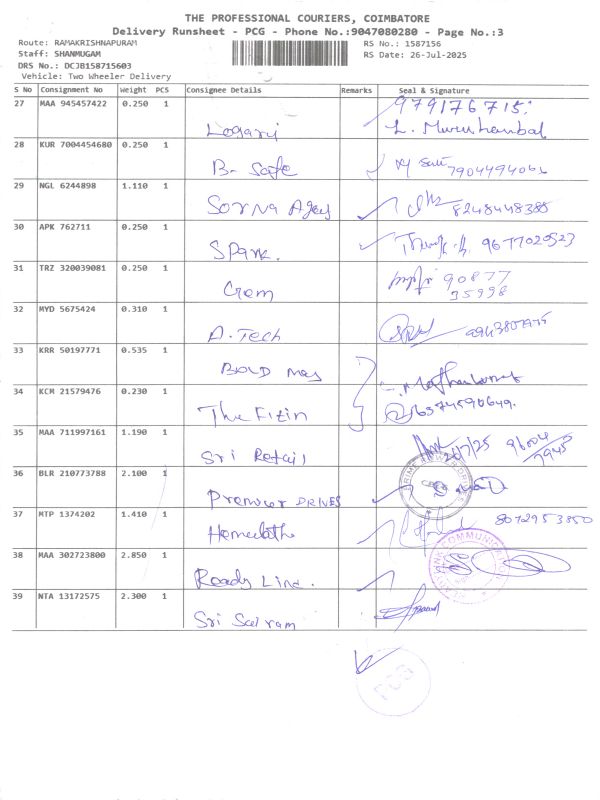 THE PROFESSIONAL COURIERS, COIMBATORE
Delivery Runsheet - PCG - Phone No.:9047080280 - Page No.:3
Route: RAMAKRISHNAPURAM
RS No.: 1587156
Staff: SHANMUGAM
RS Date: 26-Jul-2025
DRS No.: DCJB158715603
Vehicle: Two Wheeler Delivery
S No Consignment No Weight PCS Consignee Details Remarks Seal & Signature
27 MAA 945457422 0.250 1 979176715
28 KUR 7004454680 0.250 1 B- Safe 7904494066
29 NGL 6244898 1.110 1 Sorna 8248448385
30 APK 762711 0.250 1 SPark. 9677020523
31 TRZ 320039081 0.250 1 Gem 90877
35998
32 MYD 5675424 0.310 1 A. Tech
33 KRR 50197771 0.535 1 BOLD
34 KCM 21579476 0.230 1 The 6374590649.
35 MAA 711997161 1.190 1 Sri Retail 96004
7945
36 BLR 210773788 2.100 1 Premier DRIVES
37 MTP 1374202 1.410 1 8072953850
38 MAA 302723800 2.850 1 Ready Line.
COMMUNICATION
39 NTA 13172575 2.300 1 Sri Sai ram
PCG